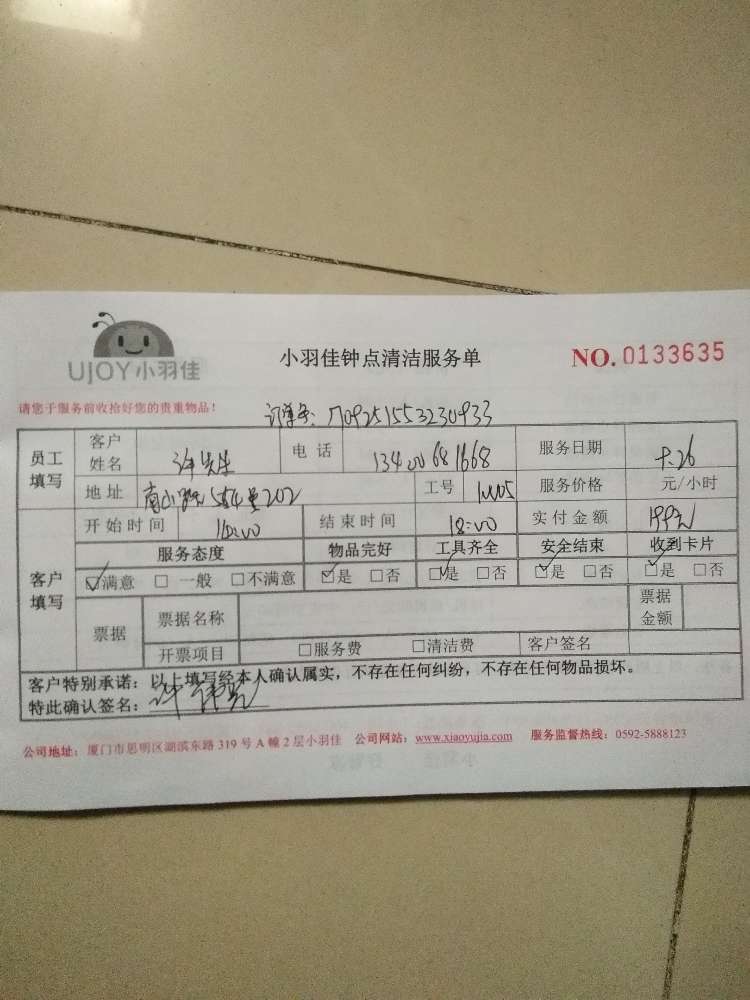 UJOY小羽佳
小羽佳钟点清洁服务单
NO. 0133635
请您于服务前收拾好您的贵重物品！
订单号：1709251553230933
员工填写 客户姓名 许先生 电话 13400681668 服务日期 9.26
地址 南山路 202 工号 服务价格 元/小时
客户填写 开始时间 结束时间 18:00 实付金额 199元
服务态度 物品完好 工具齐全 安全结束 收到卡片
☑满意 □一般 □不满意 ☑是 □否 ☑是 □否 ☑是 □否 ☑是 □否
票据 票据名称 票据金额
开票项目 □服务费 □清洁费 客户签名
客户特别承诺：以上填写经本人确认属实，不存在任何纠纷，不存在任何物品损坏。
特此确认签名：许
公司地址：厦门市思明区湖滨东路 319 号 A 幢 2 层小羽佳 公司网站：www.xiaoyujia.com 服务监督热线：0592-5888123